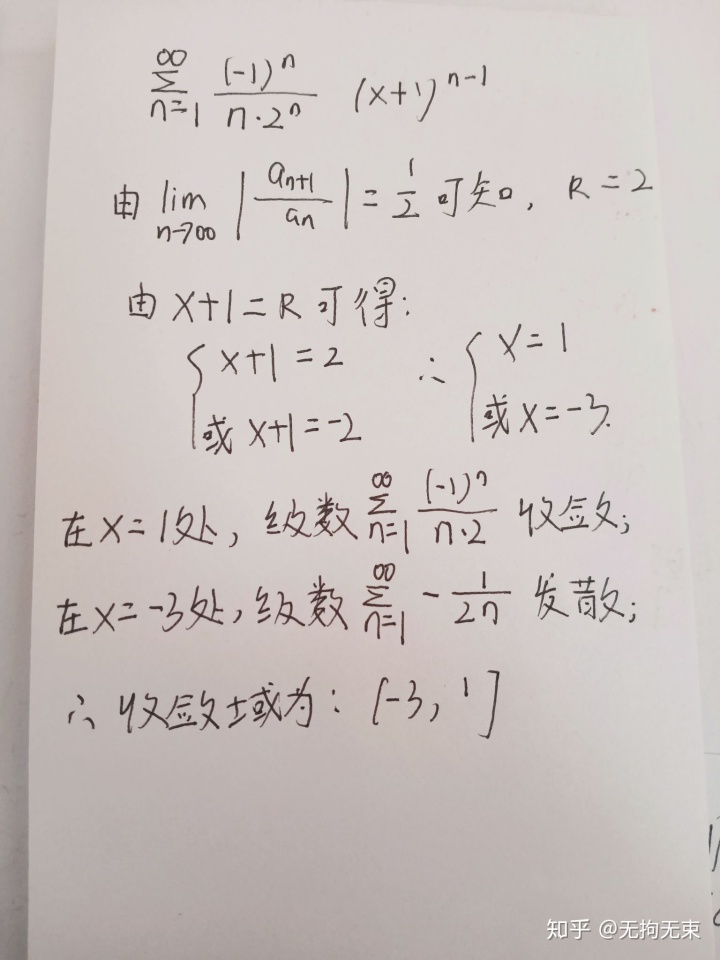 ∞∑n=1 (-1)^n / (n·2^n) (x+1)^(n-1)
由 lim n→∞ |a_(n+1) / a_n| = 1/2 可知, R=2
由 x+1=R 可得:
{ x+1=2 ∴ { x=1
或 x+1=-2 或 x=-3.
在x=1处, 级数 ∞∑n=1 (-1)^n / (n·2) 收敛;
在x=-3处, 级数 ∞∑n=1 - 1/(2n) 发散;
∴ 收敛域为: (-3, 1]
知乎 @无拘无束